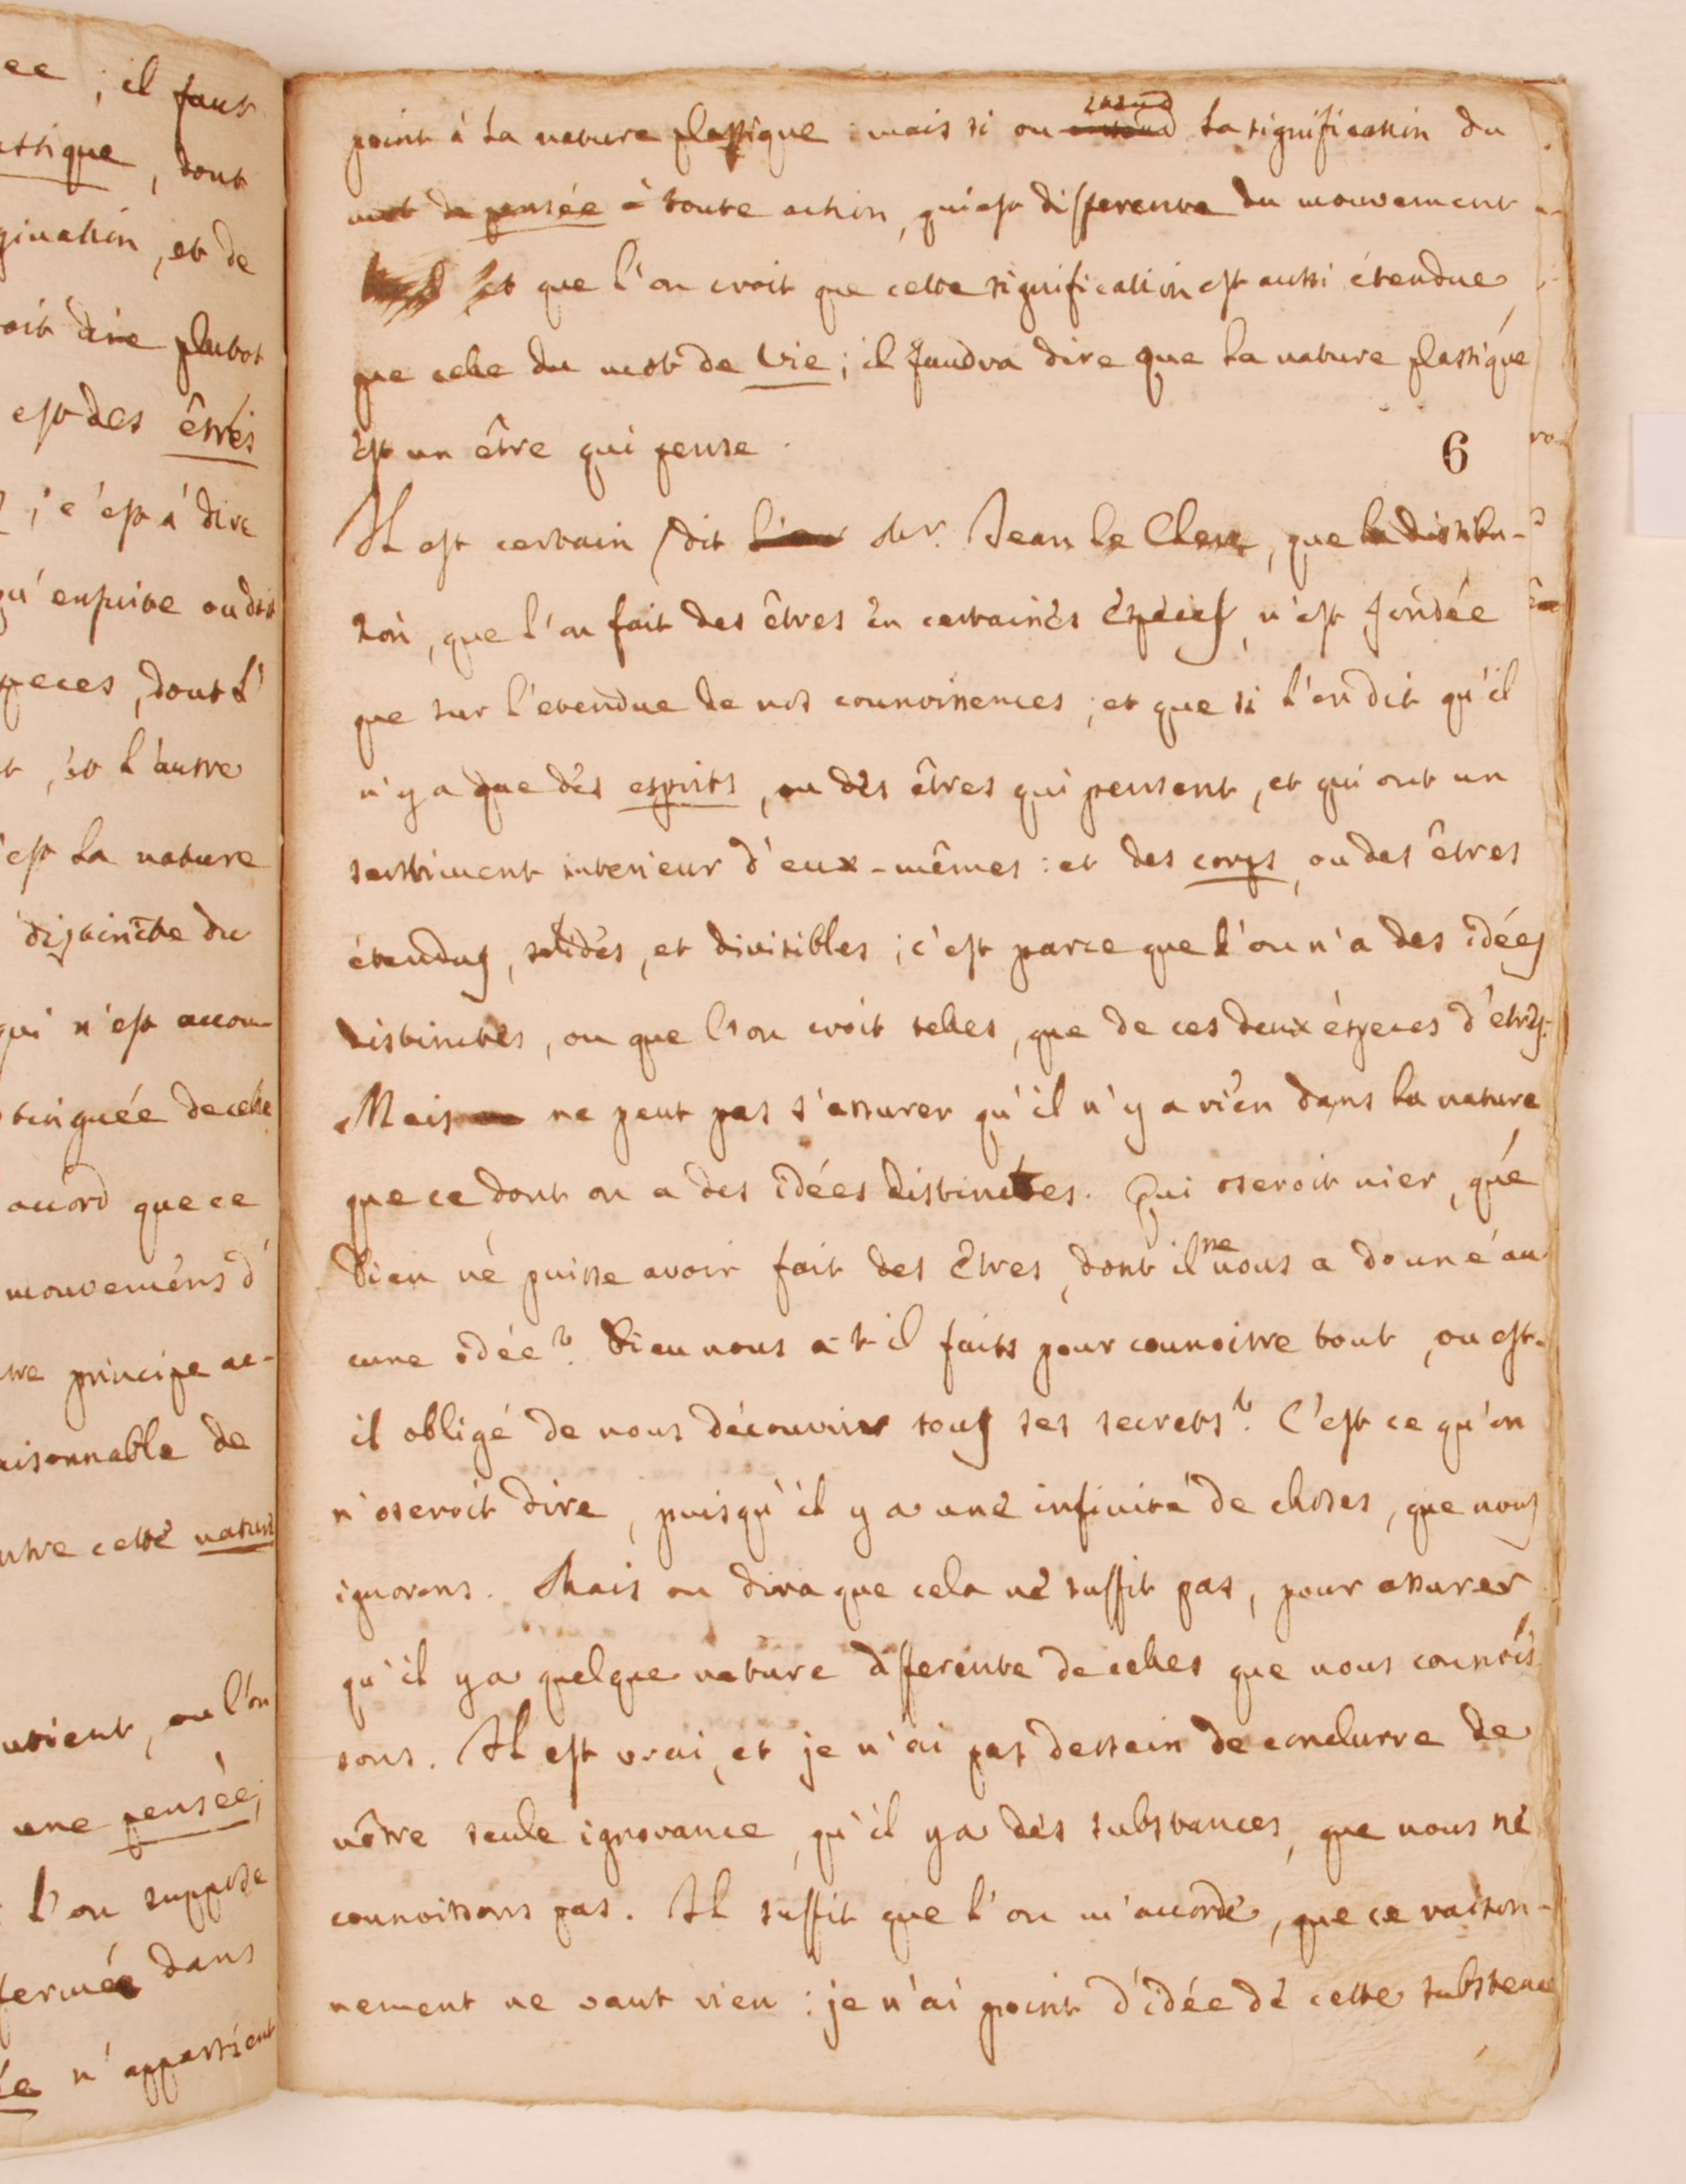 ee ; il faut
stique, dont
gination, et de
oit dire plutot
est des êtres
; c'est à dire
qu'ensuite on dit
speces, dont l'
t, et l'autre
est la nature
distincte du
qui n'est accom-
tinguée de celle
accord que ce
mouvemens d'
tre principe ac-
aisonnable de
utre cette nature
utient, ou l'on
une pensée;
l'on suppose
fermée dans
ée n'appartient
point à la nature plastique : mais si on étend la signification du
mot de pensée à toute action, qui est differente du mouvement
et que l'on croit que cette signification est aussi étendue
que celle du mot de Vie ; il faudra dire que la nature plastique
est un être qui pense.
6
Il est certain, dit Mr. Jean le Clerc, que la distribu-
tion, que l'on fait des êtres en certaines éspeces, n'est fondée
que sur l'etendue de nos connoissences ; et que si l'on dit qu'il
n'y a que des esprits, ou des êtres qui pensent, et qui ont un
sentiment interieur d'eux-mêmes : et des corps, ou des êtres
étendus, solides, et divisibles ; c'est parce que l'on n'a des idées
distinctes, ou que l'on croit telles, que de ces deux éspeces d'êtres.
Mais ne peut pas s'assurer qu'il n'y a rien dans la nature
que ce dont on a des idées distinctes. Qui oseroit nier, que
Dieu ne puisse avoir fait des Etres, dont il ne nous a donné au
cune idée? Dieu nous a-t il faits pour connoitre tout, ou est-
il obligé de nous découvrir tous ses secrets? C'est ce qu'on
n'oseroit dire, puisqu'il y a une infinité de choses, que nous
ignorons. Mais on dira que cela ne suffit pas, pour assurer
qu'il y a quelque nature differente de celles que nous connois
sons. Il est vrai, et je n'ai pas dessein de conclurre de
nôtre seule ignorance, qu'il y a des substances, que nous ne
connoissons pas. Il suffit que l'on m'accorde, que ce raison-
nement ne vaut rien : je n'ai point d'idée de cette substence